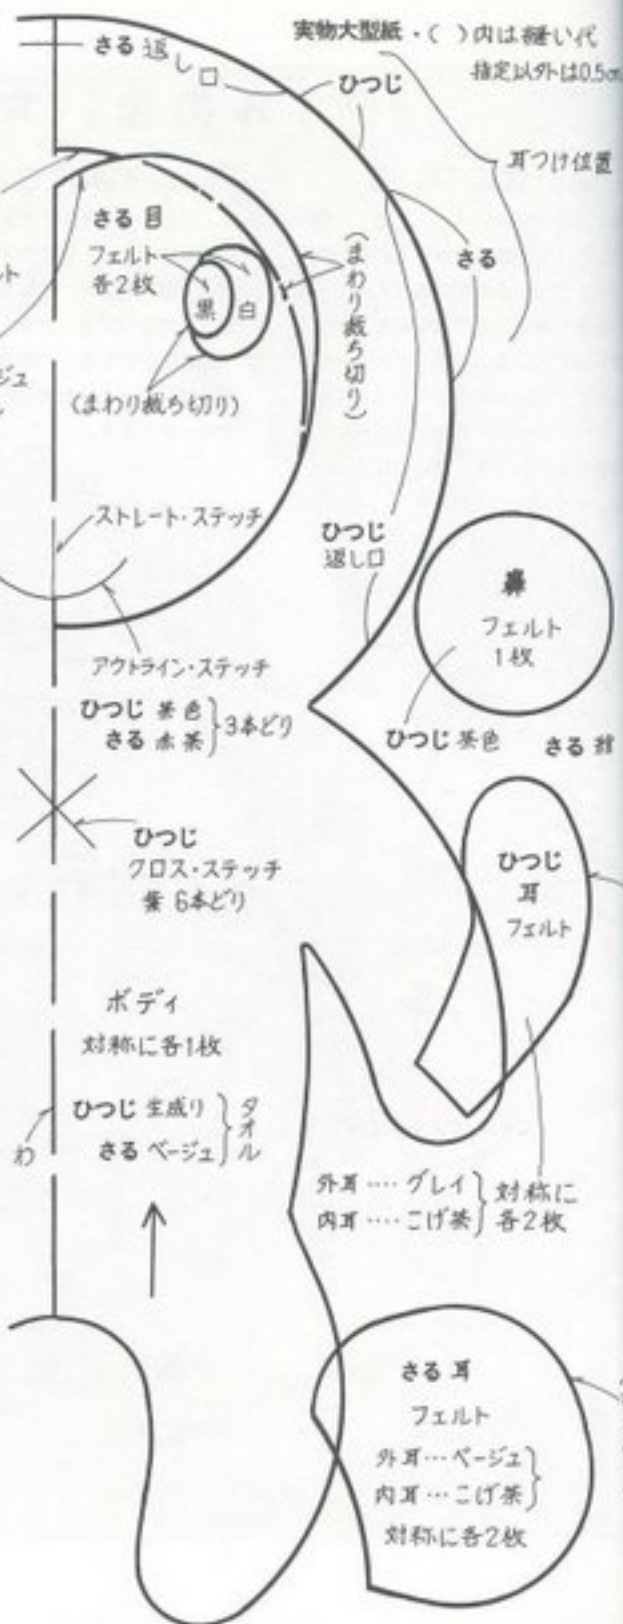 実物大型紙・( )内は縫い代
指定以外は0.5cm
さる 返し口
ひつじ
耳つけ位置
さる 目
フェルト
各2枚
黒
白
(まわり裁ち切り)
(まわり裁ち切り)
さる
ストレート・ステッチ
ひつじ
返し口
アウトライン・ステッチ
ひつじ 茶色
さる 赤茶
3本どり
鼻
フェルト
1枚
ひつじ 茶色
さる
ひつじ
クロス・ステッチ
6本どり
ひつじ
耳
フェルト
ボディ
対称に各1枚
ひつじ 生成り
さる ベージュ
タオル
わ
外耳‥‥グレイ
内耳‥‥こげ茶
対称に
各2枚
さる 耳
フェルト
外耳…ベージュ
内耳…こげ茶
対称に各2枚